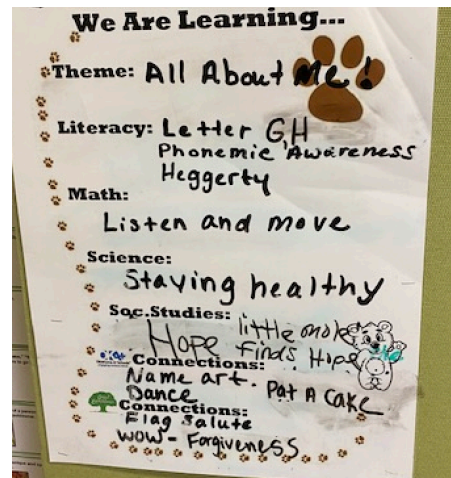 We Are Learning...
Theme: All About Me!
Literacy: Letter GH
Phonemic Awareness
Heggerty
Math:
Listen and move
Science:
Staying healthy
Soc.Studies: little mole
Hope finds Hope
Connections:
Name art. Pat A Cake
Dance
Connections:
Flag Salute
WOW - Forgiveness